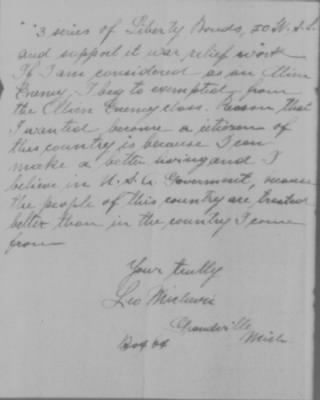 3 series of Liberty Bonds, 20 W.S.S.
and support it war relief work
If I am considered as an Alien
Enemy, I beg to exempted from
the Alien Enemy class. Reason that
I wanted become a citizen of
this country is because I can
make a better living and I
believe in U.S.A. Goverment, 
the people of this country are treated
better than in the country I come
from
Your trully
Leo
Grandville
Box 64 Mich